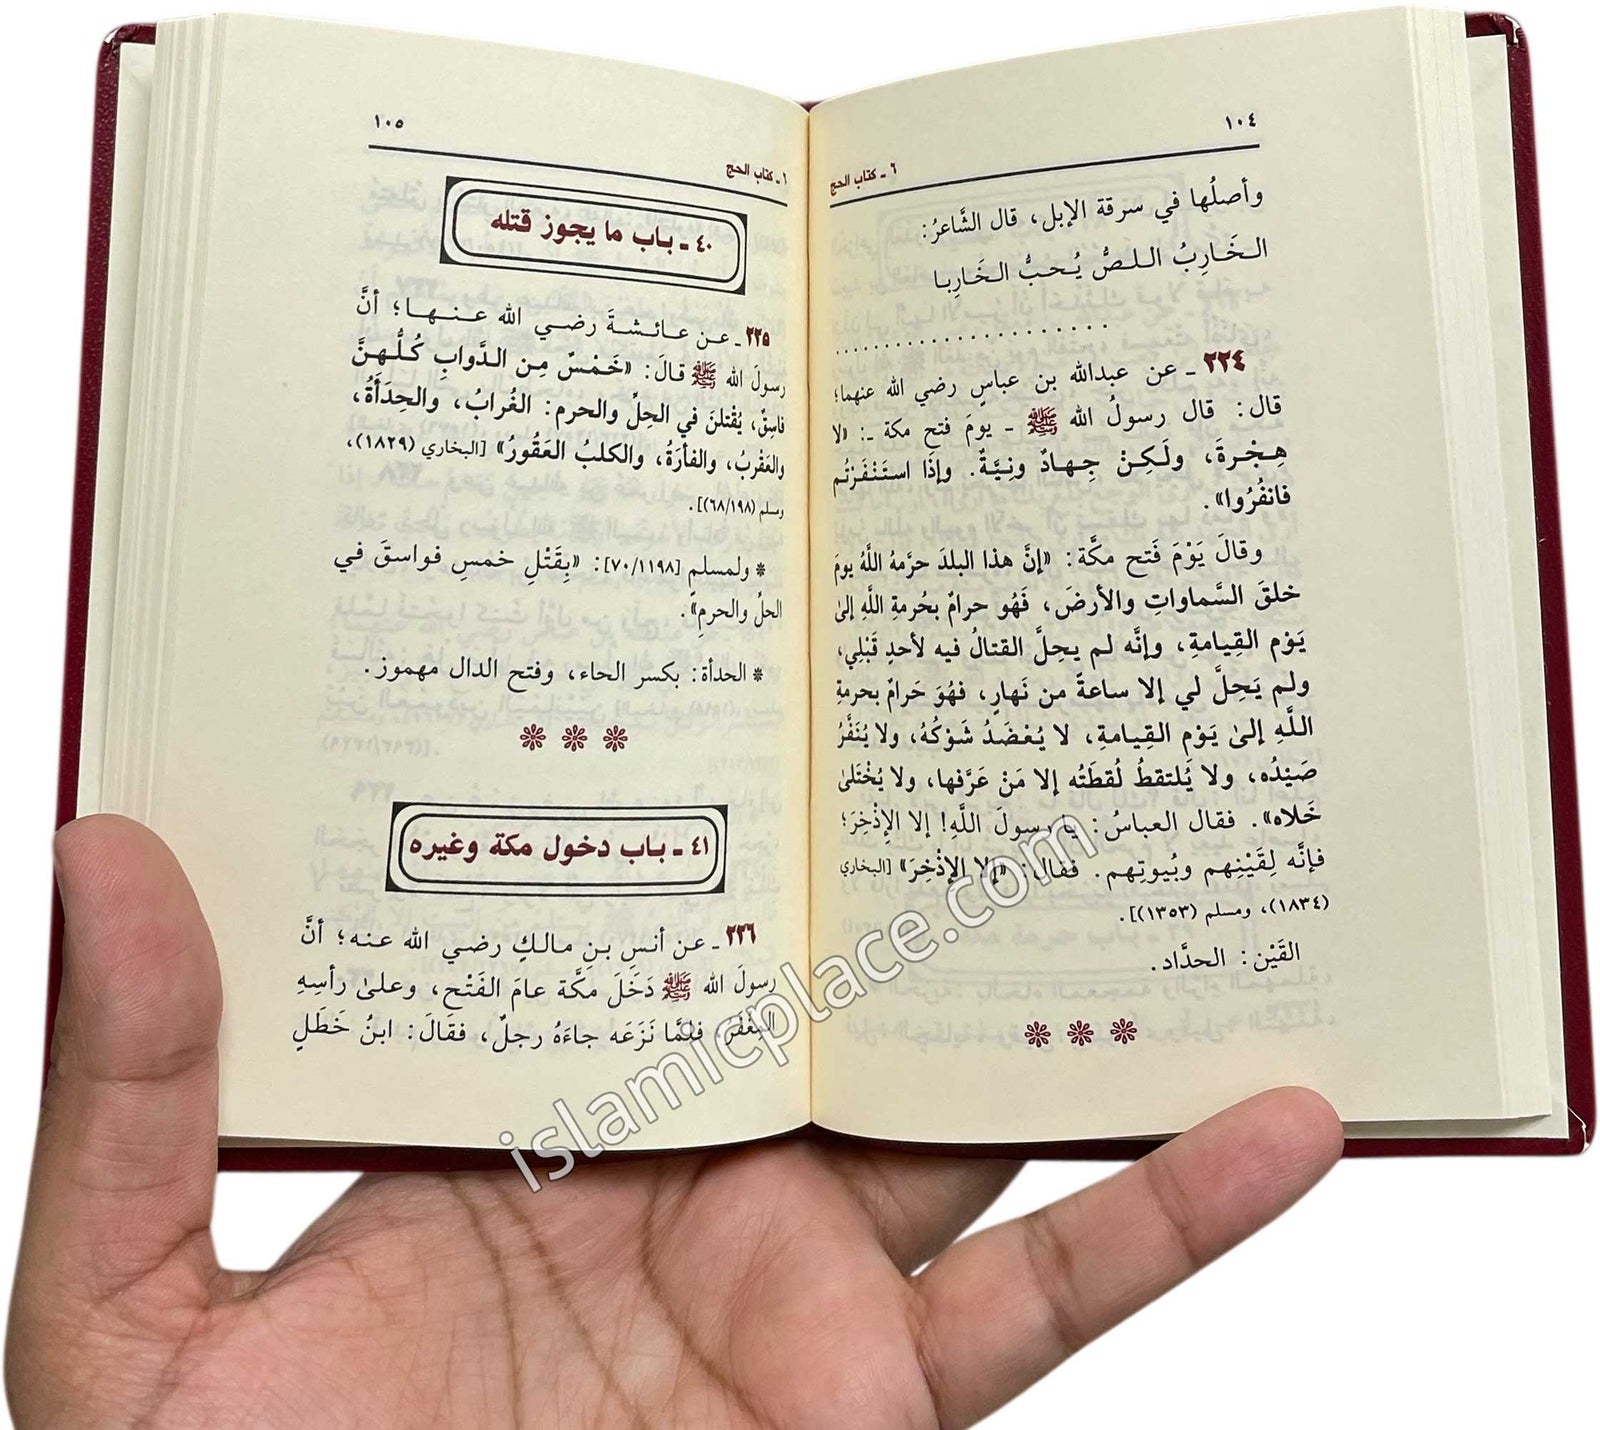 ١٠٤
٦ ـ كتاب الحج
وأصلُها في سرقة الإبل، قال الشَّاعرُ:
الـخَـارِبُ الـلـصُّ يُـحـبُّ الـخَـارِبـا
. . . . . . . . . . . . . . . . . . . .
٢٢٤ ـ عن عبدالله بن عباسٍ رضي الله عنهما؛
قال: قال رسولُ الله ﷺ ـ يومَ فتحِ مكة ـ: «لا
هِـجْـرةَ، ولَـكِـنْ جِـهـادٌ ونِـيَّـةٌ. وإذَا استَنْفَرْتُم
فانفُروا».
وقالَ يَوْمَ فَتح مكَّة: «إنَّ هذا البلدَ حرَّمهُ اللَّهُ يومَ
خلقَ السَّماواتِ والأرضَ، فَهُو حرامٌ بحُرمةِ اللَّهِ إلىٰ
يَوْمِ القِيامةِ، وإنَّه لم يحِلَّ القتالُ فيه لأحدٍ قَبْلِي،
ولم يَحِلَّ لي إلا ساعةً من نَهارٍ، فهُوَ حَرامٌ بحرمةِ
اللَّـهِ إلىٰ يَوْمِ القِيامةِ، لا يُعْضَدُ شَوْكُهُ، ولا يُنَفَّرُ
صَيْدُه، ولا يَلتقطُ لُقطَتُه إلا مَنْ عَرَّفها، ولا يُخْتَلىٰ
خَلاه». فقال العباسُ: يا رسولَ اللَّهِ! إلا الإذْخِرَ؛
فإنَّه لِقَيْنِهم وبُيوتِهم. فقال: «إلا الإذْخِرَ» [البخاري
(١٨٣٤)، ومسلم (١٣٥٣)].
القَيْن: الحدَّاد.
١٠٥
٦ ـ كتاب الحج
٤٠ ـ باب ما يجوز قتله
٢٢٥ ـ عـن عـائـشـةَ رضـي الله عـنـهـا؛ أنَّ
رسولَ الله ﷺ قالَ: «خَـمْـسٌ مِـن الـدَّوابِ كُـلُّـهـنَّ
فاسِقٌ، يُقْتلنَ في الحِلِّ والحرم: الغُرابُ، والحِدَأَةُ،
والعَقْربُ، والفأرَةُ، والكلبُ العَقُورُ» [البخاري (١٨٢٩)،
ومسلم (٦٨/١٩٨)].
* ولمسلمٍ [٧٠/١١٩٨]: «بِقَتْلِ خمسِ فواسقَ في
الحلِّ والحرمِ».
* الحدأة: بكسر الحاء، وفتح الدال مهموز.
٤١ ـ باب دخول مكة وغيره
٢٢٦ ـ عن أنسِ بنِ مالـكٍ رضـي الله عـنـه؛ أنَّ
رسولَ الله ﷺ دَخَلَ مكَّة عامَ الفَتْحِ، وعلىٰ رأسِهِ
المِغْفَرُ، فلمَّا نَزَعَه جاءَهُ رجلٌ، فقالَ: ابنُ خَطَلٍ
islamicplace.com